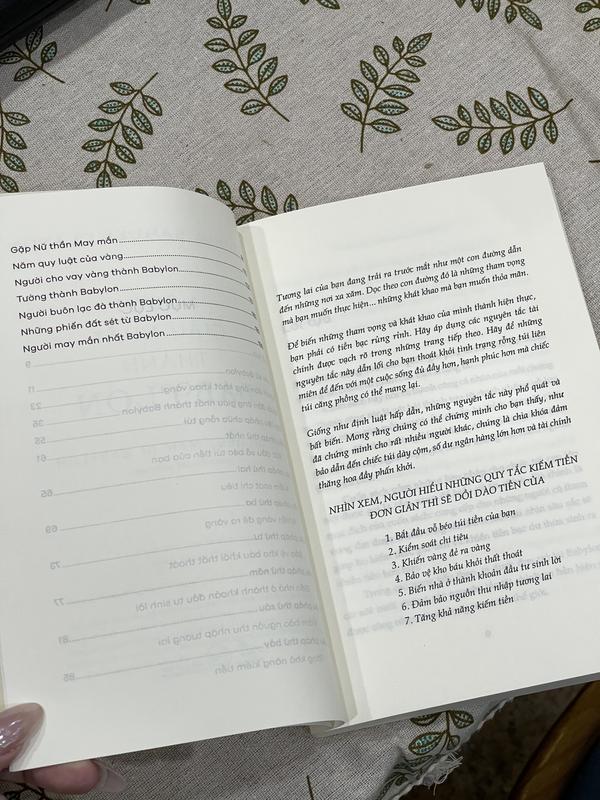 Gặp Nữ thần May mắn
Năm quy luật của vàng
Người cho vay vàng thành Babylon
Tường thành Babylon
Người buôn lạc đà thành Babylon
Những phiến đất sét từ Babylon
Người may mắn nhất Babylon
Tương lai của bạn đang trải ra trước mắt như một con đường dẫn
đến những nơi xa xăm. Dọc theo con đường đó là những tham vọng
mà bạn muốn thực hiện... những khát khao mà bạn muốn thỏa mãn.
Để biến những tham vọng và khát khao của mình thành hiện thực,
bạn phải có tiền bạc rủng rỉnh. Hãy áp dụng các nguyên tắc tài
chính được vạch rõ trong những trang tiếp theo. Hãy để những
nguyên tắc này dẫn lối cho bạn thoát khỏi tình trạng rỗng túi liên
miên để đến với một cuộc sống đủ đầy hơn, hạnh phúc hơn mà chiếc
túi căng phồng có thể mang lại.
Giống như định luật hấp dẫn, những nguyên tắc này phổ quát và
bất biến. Mong rằng chúng có thể chứng minh cho bạn thấy, như
đã chứng minh cho rất nhiều người khác, chúng là chìa khóa đảm
bảo dẫn đến chiếc túi dày cộm, số dư ngân hàng lớn hơn và tài chính
thăng hoa đầy phấn khởi.
NHÌN XEM, NGƯỜI HIỂU NHỮNG QUY TẮC KIẾM TIỀN
ĐƠN GIẢN THÌ SẼ DỒI DÀO TIỀN CỦA
1. Bắt đầu vỗ béo túi tiền của bạn
2. Kiểm soát chi tiêu
3. Khiến vàng đẻ ra vàng
4. Bảo vệ kho báu khỏi thất thoát
5. Biến nhà ở thành khoản đầu tư sinh lời
6. Đảm bảo nguồn thu nhập tương lai
7. Tăng khả năng kiếm tiền